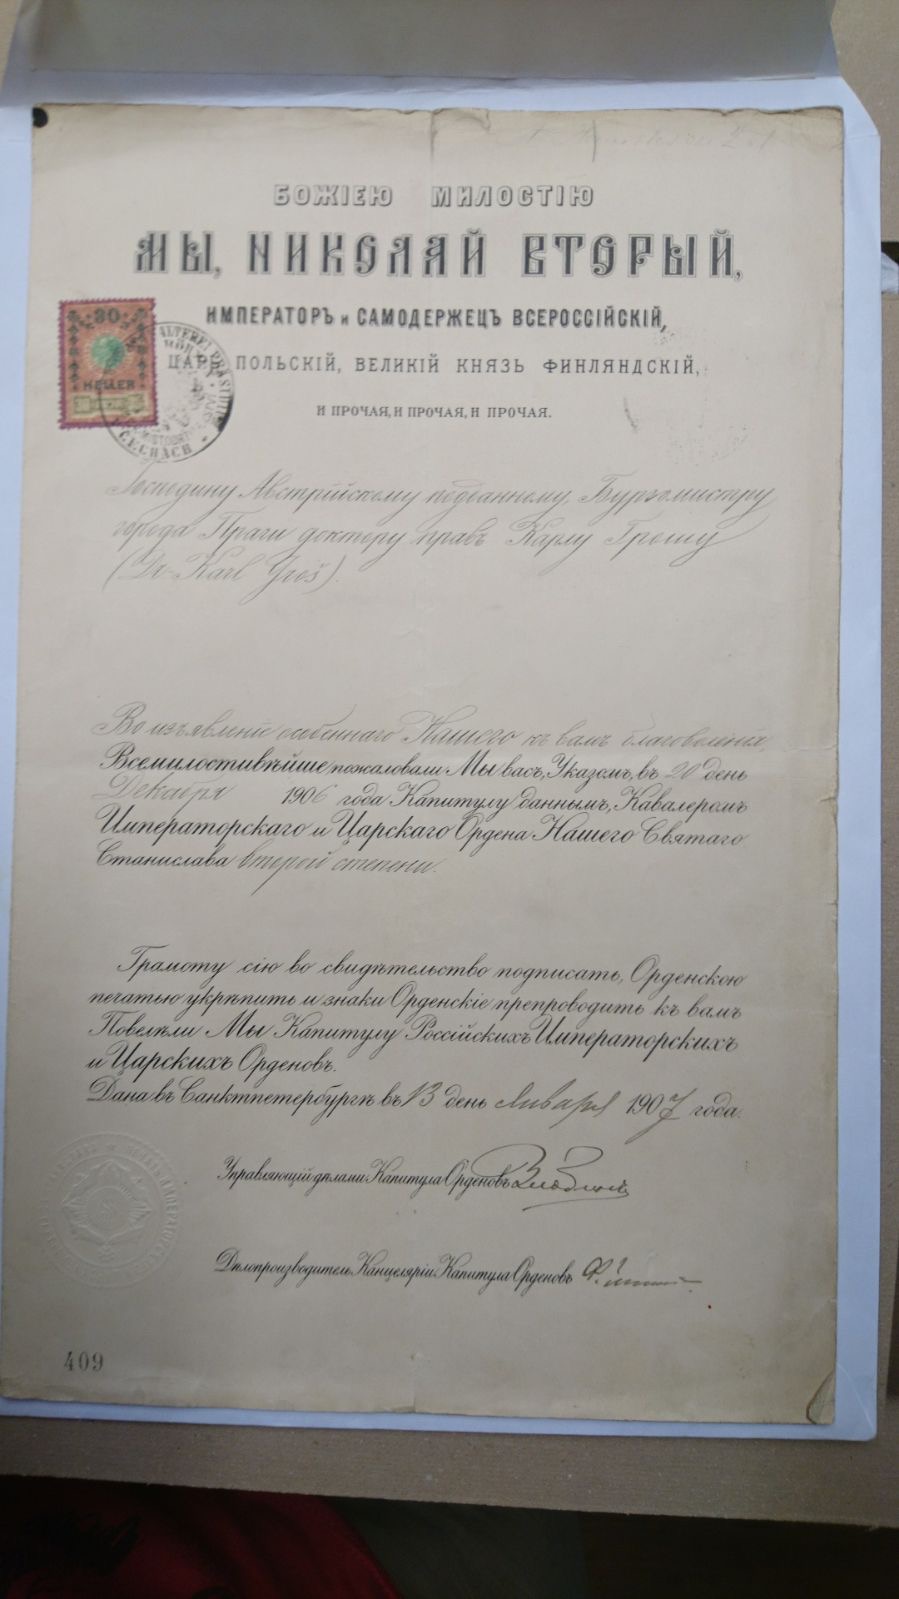 БОЖІЕЮ МИЛОСТІЮ
МЫ, НИКОЛАЙ ВТОРЫЙ,
ИМПЕРАТОРЪ и САМОДЕРЖЕЦЪ ВСЕРОССІЙСКІЙ,
ЦАРЬ ПОЛЬСКІЙ, ВЕЛИКІЙ КНЯЗЬ ФИНЛЯНДСКІЙ,
И ПРОЧАЯ, И ПРОЧАЯ, И ПРОЧАЯ.
30
HELLER
Господину Австрійскому подданному, Бургомистру
города Праги доктору правъ Карлу Грошу
(Dr. Karl Groš).
Во изъявленіе особеннаго Нашего къ вамъ благоволенія,
Всемилостивѣйше пожаловали Мы васъ, Указомъ, въ 20 день
Декабря 1906 года Капитулу даннымъ, Кавалеромъ
Императорскаго и Царскаго Ордена Нашего Святаго
Станислава второй степени.
Грамоту сію во свидѣтельство подписать, Орденскою
печатью укрѣпить и знаки Орденскіе препроводить къ вамъ
Повелѣли Мы Капитулу Россійскихъ Императорскихъ
и Царскихъ Орденовъ.
Дана въ Санктпетербургѣ въ 13 день Января 1907 года.
Управляющій дѣлами Капитула Орденовъ
Дѣлопроизводитель Канцеляріи Капитула Орденовъ
409